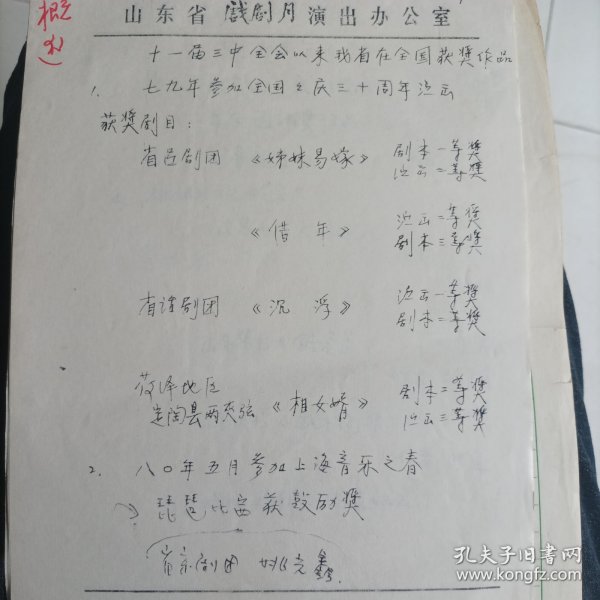 山东省戏剧月演出办公室
概况
十一届三中全会以来我省在全国获奖作品
1. 七九年参加全国国庆三十周年演出
获奖剧目:
省吕剧团 《姊妹易嫁》 剧本一等奖
演出二等奖
《借年》 演出二等奖
剧本三等奖
省话剧团 《沉浮》 演出一等奖
剧本二等奖
菏泽地区
定陶县两夹弦《相女婿》 剧本二等奖
演出三等奖
2. 八〇年五月参加上海音乐之春
琵琶比赛获鼓励奖
省京剧团
孔夫子旧书网
www.kongfz.com